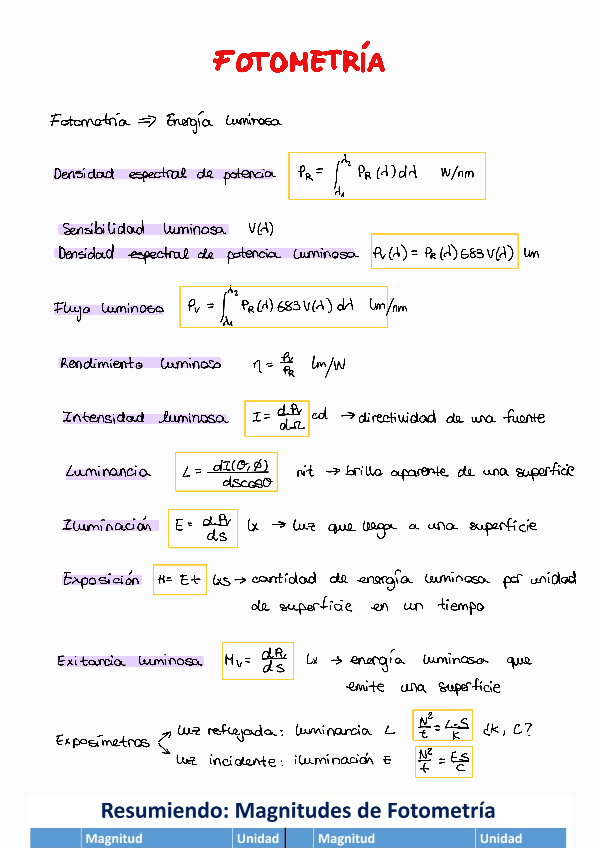 FOTOMETRÍA
Fotometría => Energía luminosa
Densidad espectral de potencia P_R = ∫_λ1^λ2 P_R(λ)dλ W/nm
Sensibilidad luminosa V(λ)
Densidad espectral de potencia luminosa P_V(λ) = P_R(λ) 683 V(λ) lm
Flujo luminoso P_V = ∫_λ1^λ2 P_R(λ) 683 V(λ) dλ lm/nm
Rendimiento luminoso η = P_V/P_R lm/W
Intensidad luminosa I = dP_V/dΩ cd → directividad de una fuente
Luminancia L = dI(θ,φ)/dscosθ nit → brillo aparente de una superficie
Iluminación E = dP_V/ds lx → luz que llega a una superficie
Exposición H = E·t lxs → cantidad de energía luminosa por unidad
de superficie en un tiempo
Exitancia luminosa M_V = dP_V/ds lx → energía luminosa que
emite una superficie
Exposímetros luz reflejada: luminancia L N²/t = L·S/K ¿K, C?
luz incidente: iluminación E N²/t = ES/C
Resumiendo: Magnitudes de Fotometría
Magnitud Unidad Magnitud Unidad